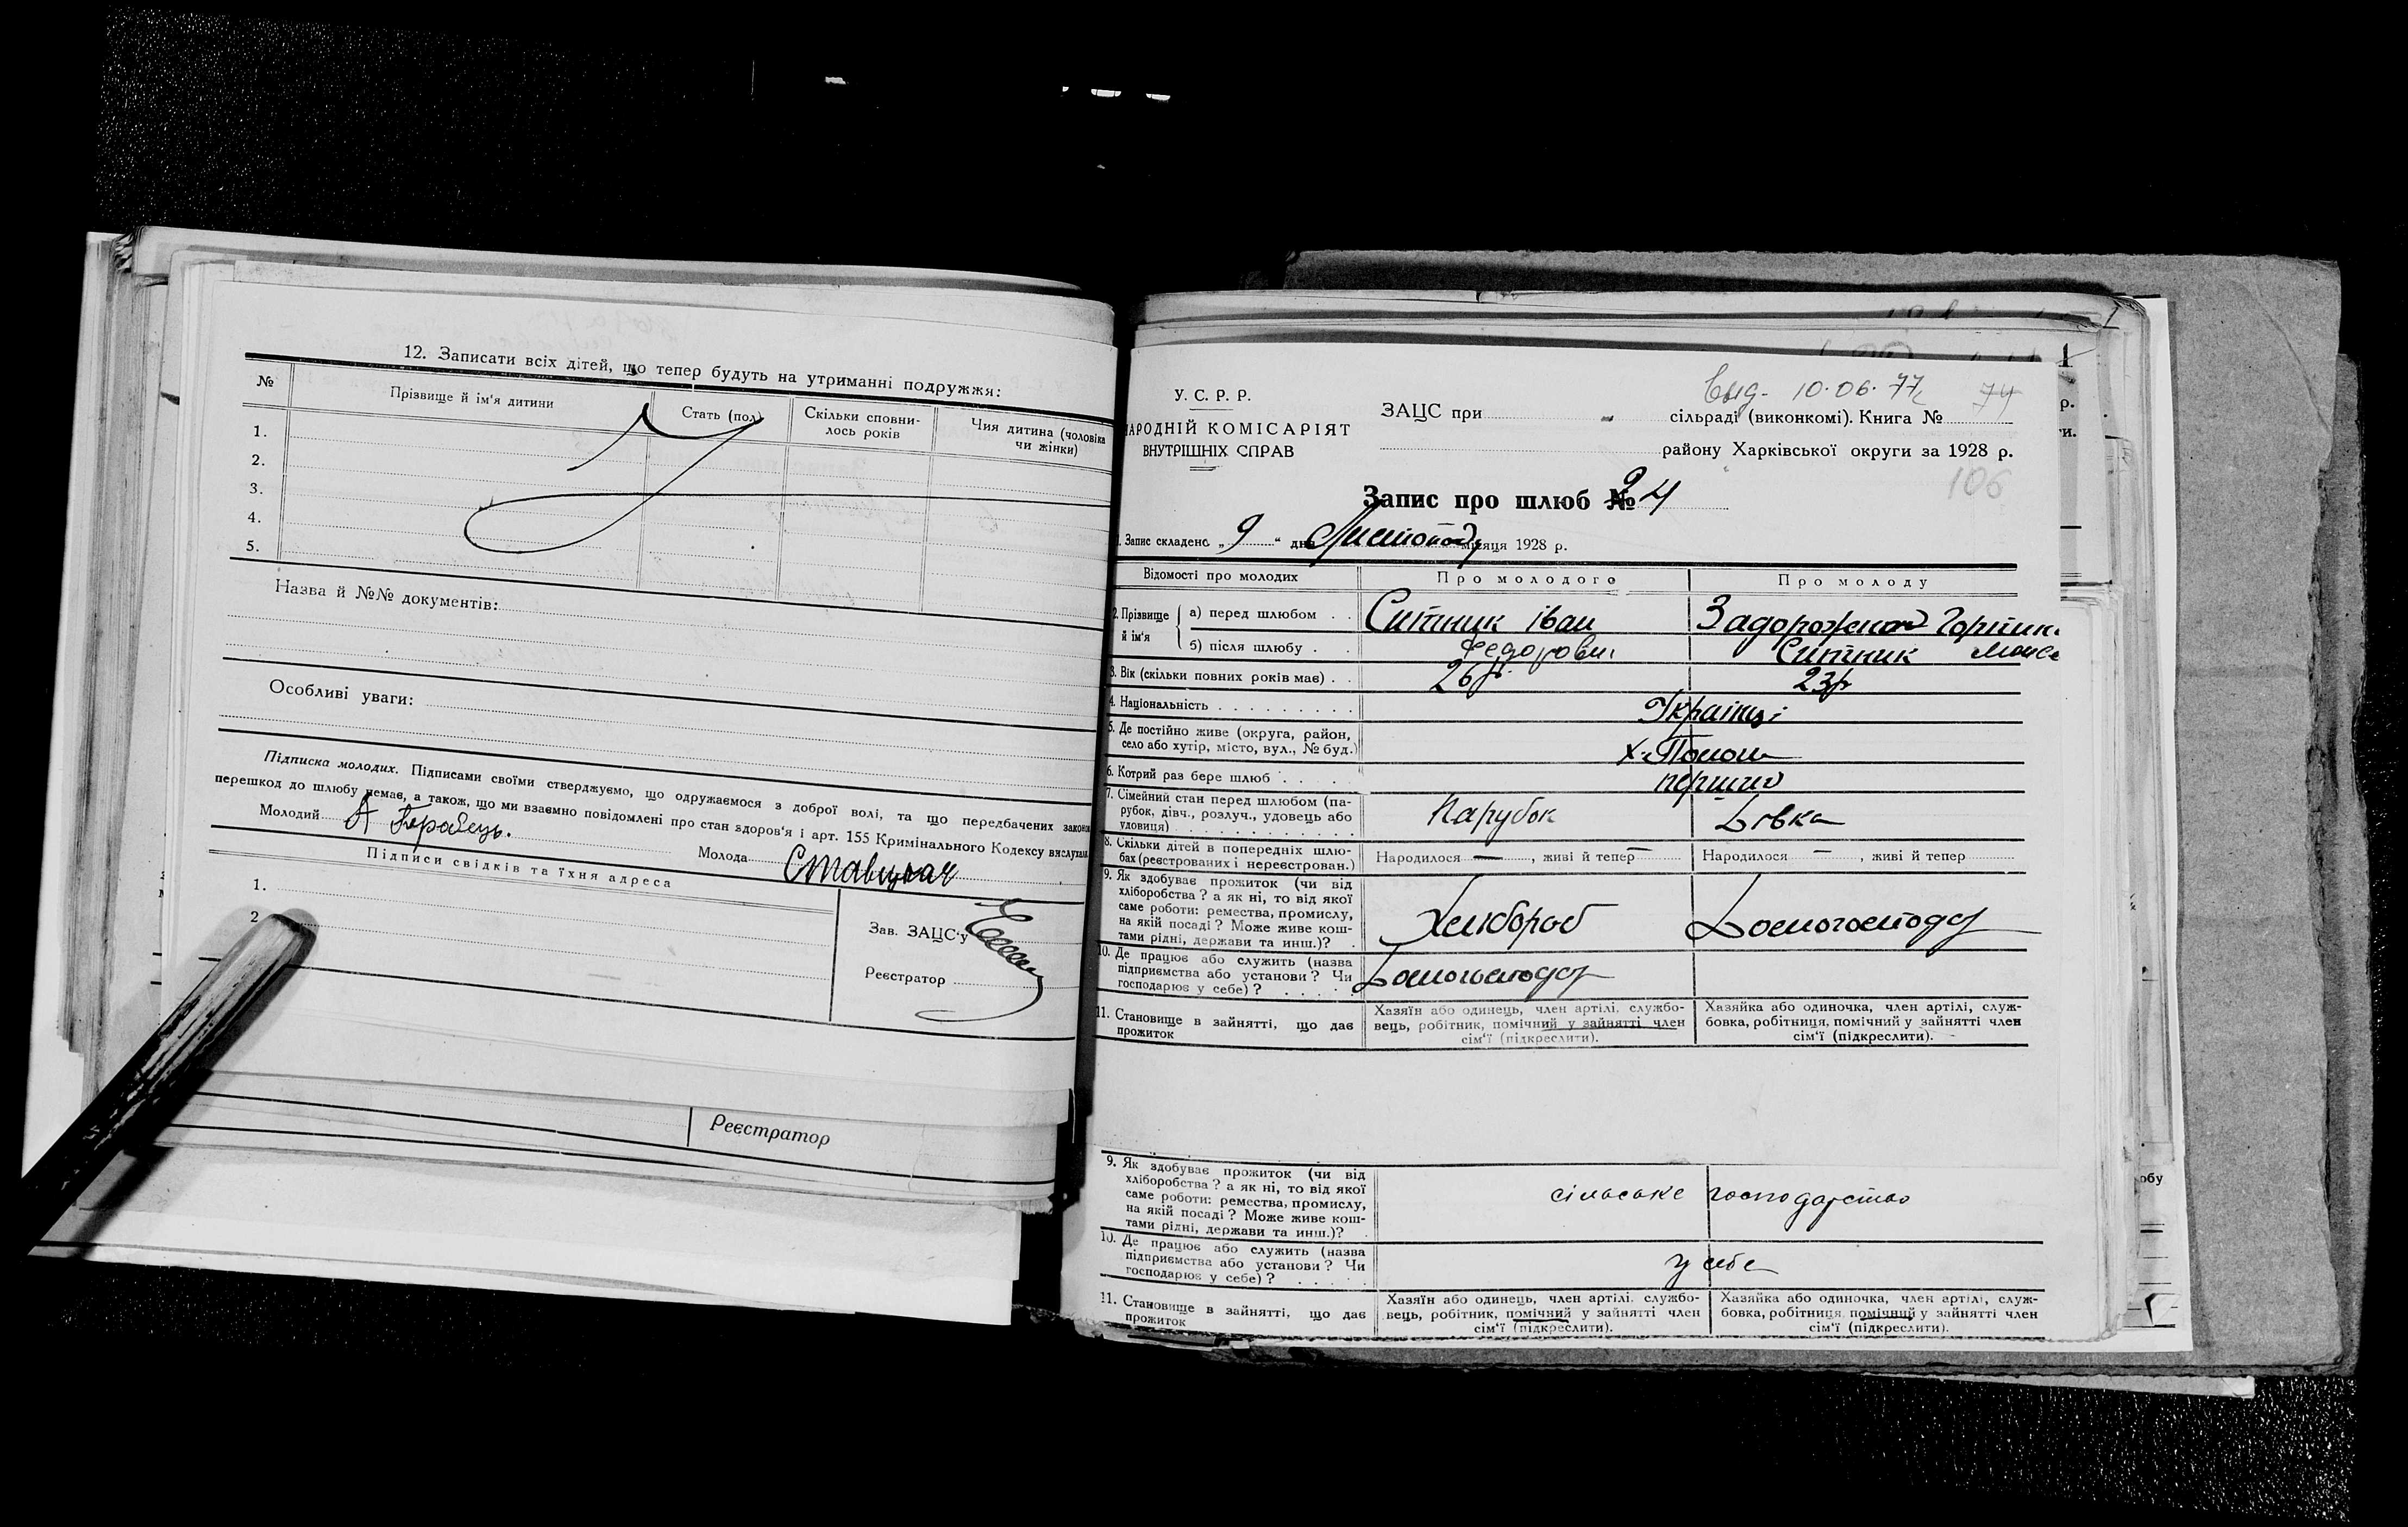 12. Записати всіх дітей, що тепер будуть на утриманні подружжя:
№
Прізвище й ім'я дитини
Стать (пол)
Скільки сповни-
лось років
Чия дитина (чоловіка
чи жінки)
1.
2.
3.
4.
5.
Назва й №№ документів:
Особливі уваги:
Підписка молодих. Підписами своїми стверджуємо, що одружаємося з доброї волі, та що передбачених законом
перешкод до шлюбу немає, а також, що ми взаємно повідомлені про стан здоров'я і арт. 155 Кримінального Кодексу вислухали
Молодий
Молода Ставицкая
Підписи свідків та їхня адреса
1.
2
Зав. ЗАЦС'у
Реєстратор
Реєстратор
У. С. Р. Р.
НАРОДНІЙ КОМІСАРІЯТ
ВНУТРІШНІХ СПРАВ
10.06.77 74
ЗАЦС при сільраді (виконкомі). Книга №
району Харківської округи за 1928 р.
106
Запис про шлюб № 24
1. Запис складено „ 9 “ дня Листопада місяця 1928 р.
Відомості про молодих
Про молодого
Про молоду
2. Прізвище й ім'я
а) перед шлюбом . .
Ситник Іван
Задорожна Горпина
б) після шлюбу . .
Федорович
Ситник
3. Вік (скільки повних років має) . .
26 р.
23 р
4. Національність . . . . . . . . .
Українці
5. Де постійно живе (округа, район,
село або хутір, місто, вул., № буд.)
6. Котрий раз бере шлюб . . . . .
перший
7. Сімейний стан перед шлюбом (па-
рубок, дівч., розлуч., удовець або
удовиця) . . . . . . . . . . .
Парубок
Дівка
8. Скільки дітей в попередніх шлю-
бах (реєстрованих і нереєстрован.)
Народилося — , живі й тепер —
Народилося — , живі й тепер
9. Як здобуває прожиток (чи від
хліборобства? а як ні, то від якої
саме роботи: ремества, промислу,
на якій посаді? Може живе кош-
тами рідні, держави та инш.)?
Хлібороб
Домогосподар
10. Де працює або служить (назва
підприємства або установи? Чи
господарює у себе)? . . . . .
Домогосподар
11. Становище в зайнятті, що дає
прожиток
Хазяїн або одинець, член артілі, службо-
вець, робітник, помічний у зайнятті член
сім'ї (підкреслити).
Хазяйка або одиночка, член артілі, служ-
бовка, робітниця, помічний у зайнятті член
сім'ї (підкреслити).
9. Як здобуває прожиток (чи від
хліборобства? а як ні, то від якої
саме роботи: ремества, промислу,
на якій посаді? Може живе кош-
тами рідні, держави та инш.)?
сільське господарство
10. Де працює або служить (назва
підприємства або установи? Чи
господарює у себе)? . . . . .
у себе
11. Становище в зайнятті, що дає
прожиток
Хазяїн або одинець, член артілі, службо-
вець, робітник, помічний у зайнятті член
сім'ї (підкреслити).
Хазяйка або одиночка, член артілі, служ-
бовка, робітниця, помічний у зайнятті член
сім'ї (підкреслити).